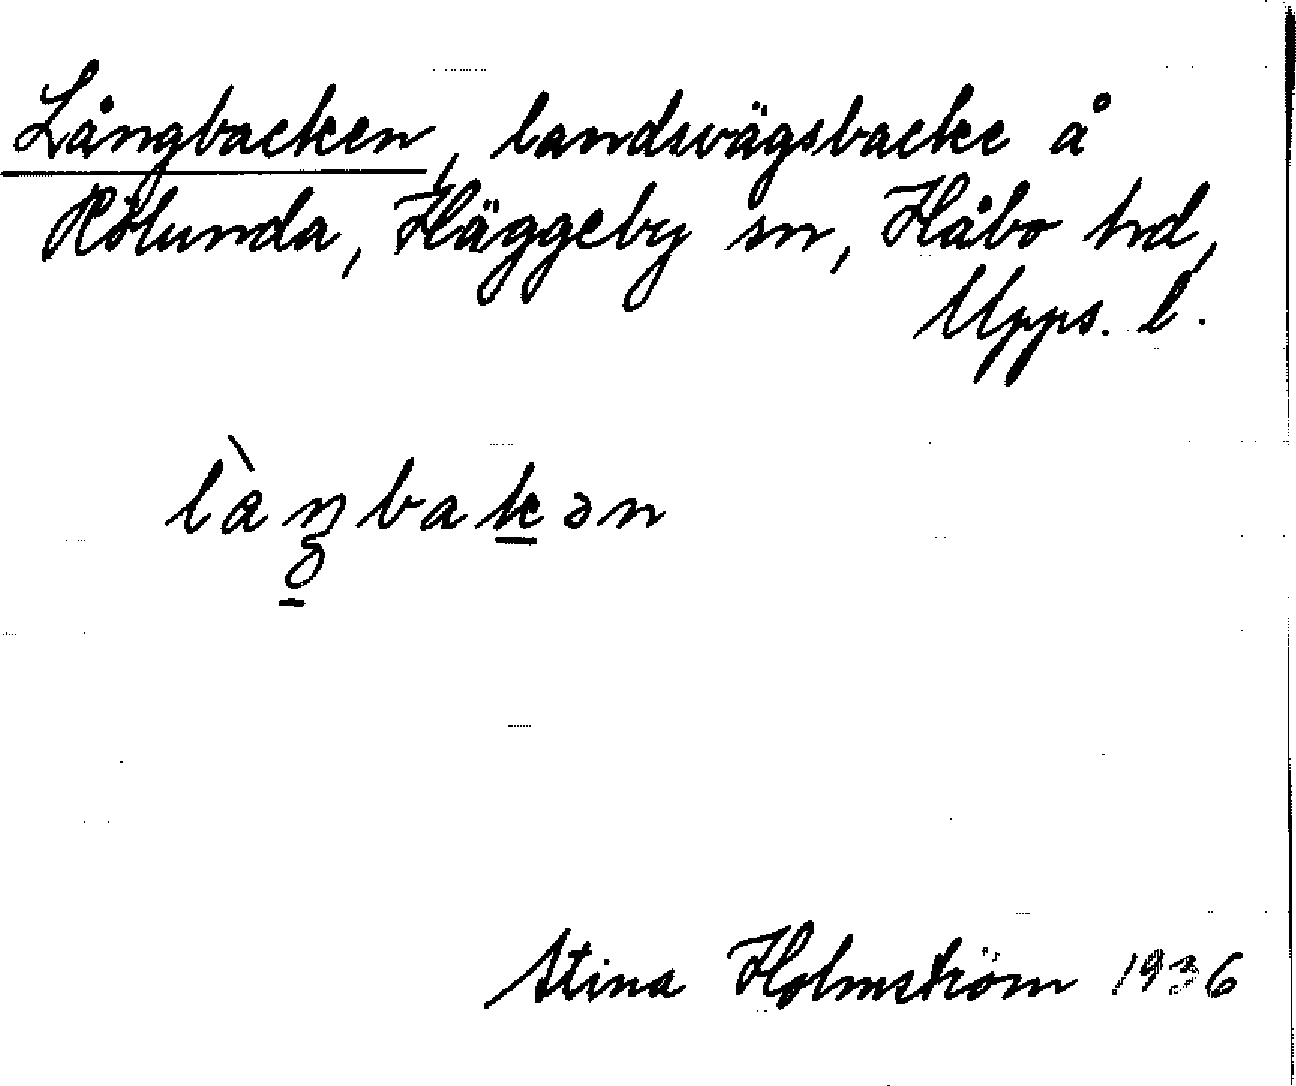 Långbacken, landsvägsbacke å
Rölunda, Häggeby sn, Håbo hd,
Upps. l.
là̀ŋbakən
Stina Holmström 1936